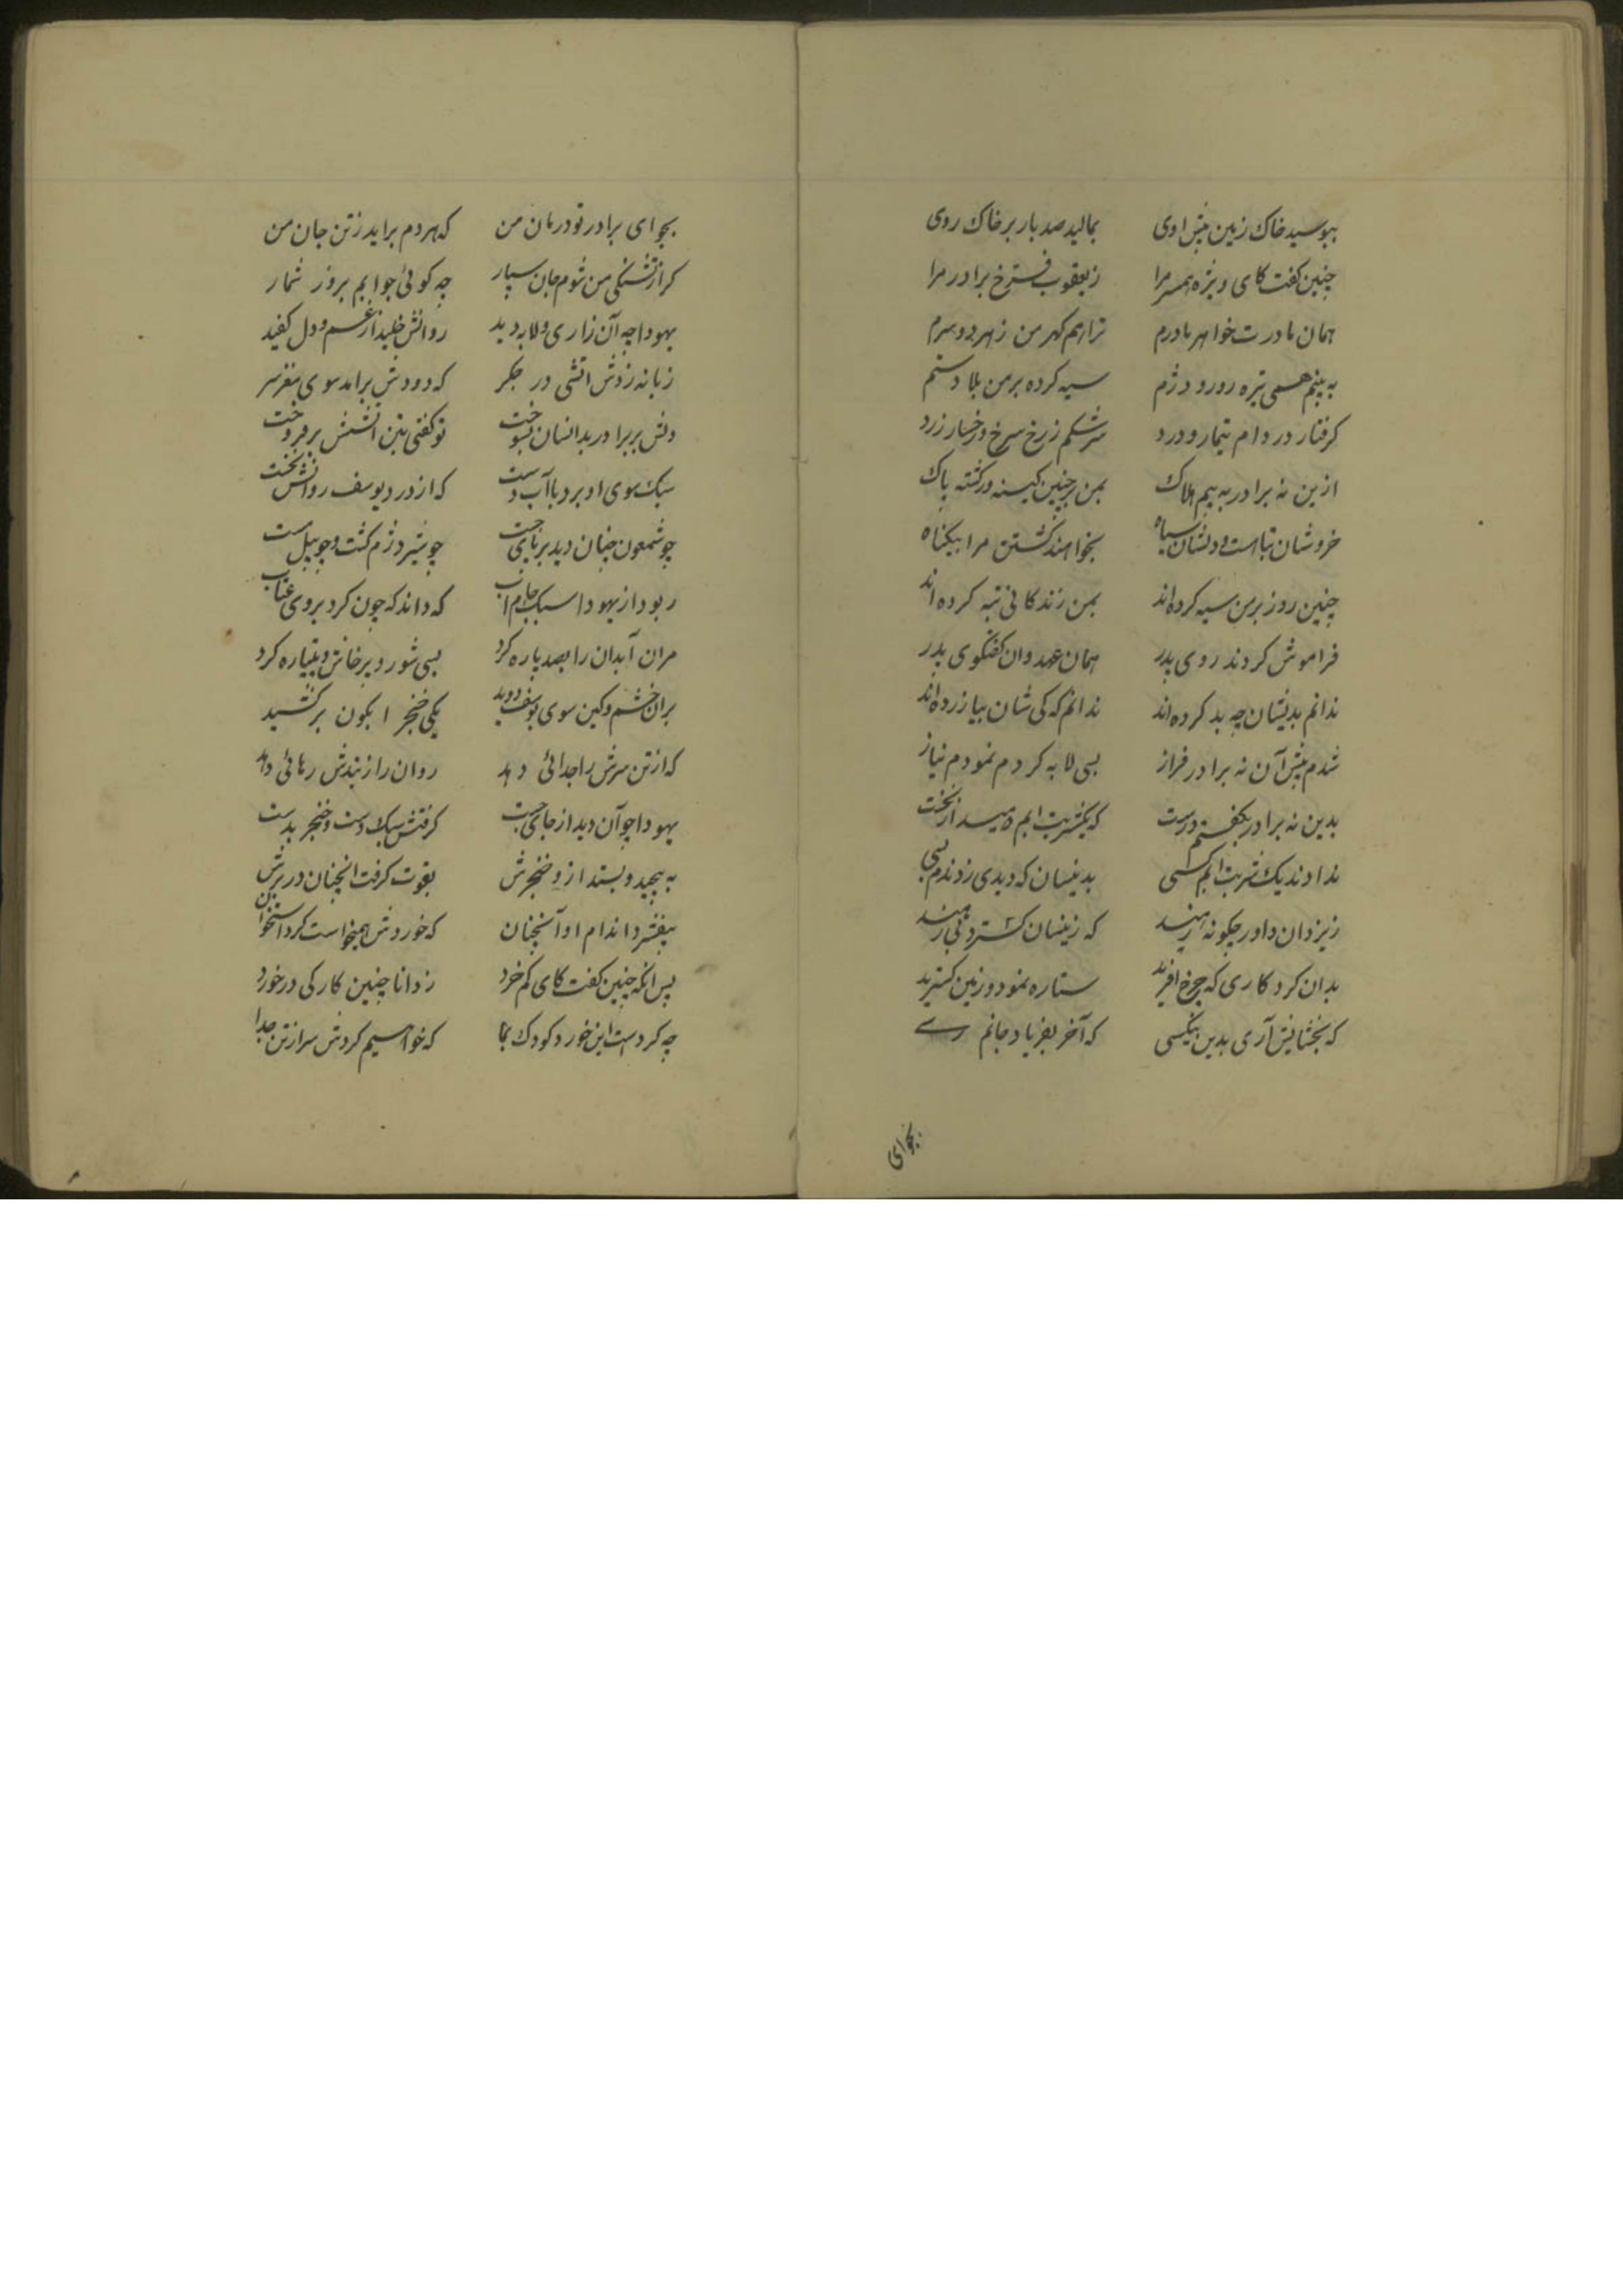 ببوسید خاک زمین پیش اوی بمالید صد بار بر خاک روی
چنین کفت کای ویژه همسر مرا ز یعقوب فرخ برادر مرا
همان مادرت خواهر مادرم ترا هم کهر من ز هر دو سرم
به بینم همی تیره رورو دژم سیه کرده بر من بلا و ستم
کرفتار در دام تیمار و درد سرشکم ز رخ سرخ و رخسار زرد
ازین نه برادر به بیم هلاک بمن بر چنین کینه ور کشته پاک
خروشان تباست و دلشان سیاه بخواهند کشتن مرا بیکناه
چنین روز بر من سیه کرده‌اند بمن زندکانی تبه کرده‌اند
فراموش کردند روی پدر همان عهد وان کفتکوی پدر
ندانم بدیشان چه بد کرده‌اند ندانم که کی شان بیازرده‌اند
شدم پیش آن نه برادر فراز بسی لابه کردم نمودم نیاز
بدین نه برادر بکفتم درست که یکشربت ابم دهید از نخست
ندادند یک شربت ابم کسی بدینسان که دیدی زدندم بسی
ز یزدان داور چکونه رهند که زینسان
بدان کردکاری که چرخ افرید ستاره نمود و زمین کسترید
که بخشایش آری بدین بیکسی که آخر بفریاد جانم رسی
بجوای
بجو ای برادر تو درمان من که هر دم براید ز تن جان من
کر از تشنکی من شوم جان سپار چه کوئی جوابم بروز شمار
یهودا چه آن زاری و لابه دید روانش خلید از غم و دل کفید
زبانه زدش اتشی در جکر که دودش برامد سوی مغز سر
دلش بر برادر بدانسان بسوخت تو کفتی بتن اتشش برفروخت
سبک سوی او برد با آب دست که از درد یوسف روانش بخست
چو شمعون چنان دید بر پای جست چو شیر دژم کشت و چو پیل مست
ربود از یهودا سبک جام اب که داند که چون کرد بروی عتاب
مران آبدان را بصد پاره کرد بسی شور و پرخاش و پتیاره کرد
بران خشم و کین سوی یوسف دوید یکی خنجر ابکون برکشید
که از تن سرش را جدائی دهد روان را ز بندش رهائی دهد
یهودا چو آن دید از جای جست کرفتش سبک دست و خنجر بدست
به پیچید و بستد ازو خنجرش بقوت کرفت انچنان در برش
بیفشرد اندام او آنچنان که خوردش همیخواست کرد استخوان
پس انکه چنین کفت کای کم خرد ز دانا چنین کار کی در خورد
چه کردست این خورد کودک بما که خواهیم کردش سر از تن جدا